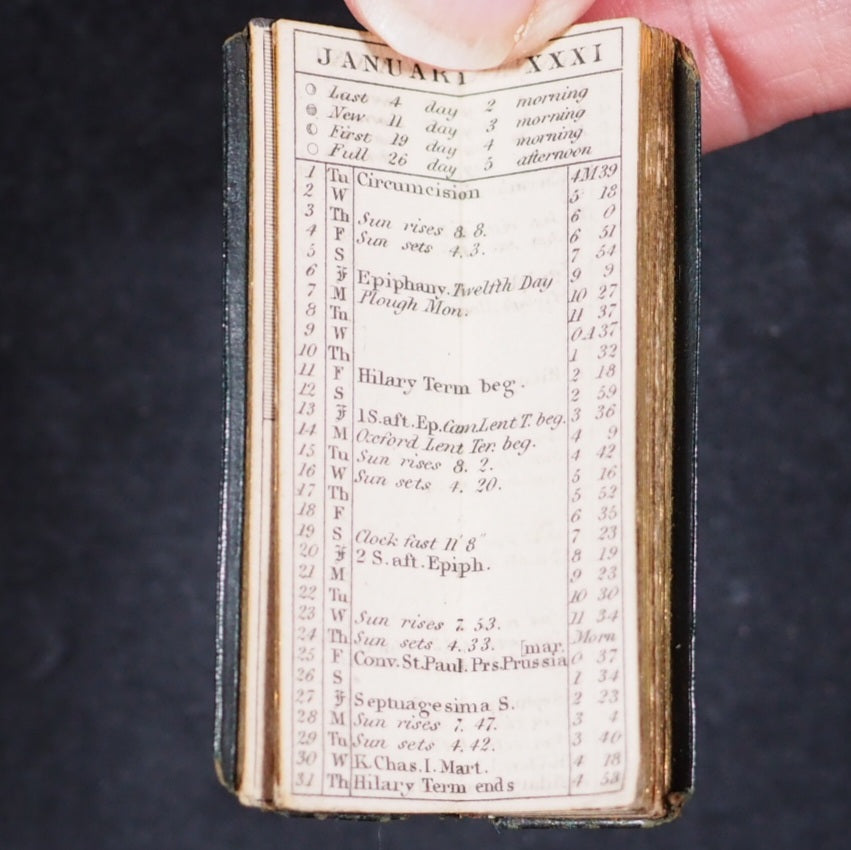 JANUARY XXXI
Last 4 day 2 morning
New 11 day 3 morning
First 19 day 4 morning
Full 26 day 5 afternoon
1 Tu Circumcision 4M39
2 W 5 18
3 Th Sun rises 8. 8. 6 0
4 F Sun sets 4. 3. 6 51
5 S 7 54
6 Epiphany. Twelfth Day 9 9
7 M Plough Mon. 10 27
8 Tu 11 37
9 W 0A37
10 Th 1 32
11 F Hilary Term beg. 2 18
12 S 2 59
13 1S. aft. Ep. Cam Lent T. beg. 3 36
14 M Oxford Lent Ter. beg. 4 9
15 Tu Sun rises 8. 2. 4 42
16 W Sun sets 4. 20. 5 16
17 Th 5 52
18 F 6 35
19 S Clock fast 11' 8" 7 23
20 2 S. aft. Epiph. 8 19
21 M 9 23
22 Tu 10 30
23 W Sun rises 7. 53. 11 34
24 Th Sun sets 4. 33. [mar. Morn
25 F Conv. St. Paul. Prs. Prussia 0 37
26 S 1 34
27 Septuagesima S. 2 23
28 M Sun rises 7. 47. 3 4
29 Tu Sun sets 4. 42. 3 40
30 W K. Chas. I. Mart. 4 18
31 Th Hilary Term ends 4 53